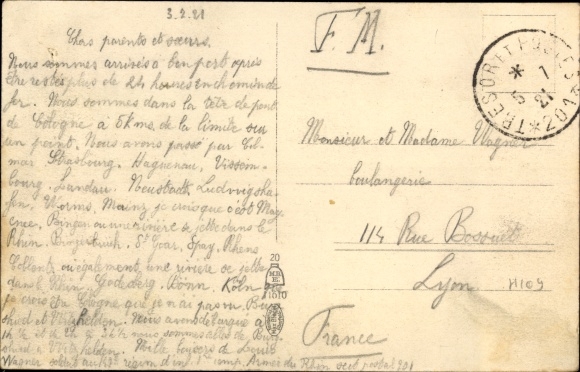 3.2.21
Chers parents et sœurs.
Nous sommes arrivés à bon port après
être restés plus de 24 heures en chemin de
fer. Nous sommes dans la tête de pont
de Cologne à 5 kms. de la limite sur
un point. Nous avons passé par Col-
mar Strasbourg. Haguenau, Vissem-
bourg. Landau. Neustadt Ludvigsha-
fen, Worms, Mainz je crois que c'est May-
ence, Bingen ou une rivière se jette dans le
Rhin, Bingerbrück, St Goar, Spay, Rhens
Coblentz ou également une rivière se jette
dans le Rhin, Godesberg, Bonn, Köln
je crois Cologne que je n'ai pas vu
et Nous avons débarqué à
nous sommes allés de
à Mille baisers de Louis
Wagner soldat au régim d'inf. 1e comp. Armée du Rhin sect postal 201
F.M.
TRESOR ET POSTES * 201 *
* 7
5 21
Monsieur et Madame Wagner
boulangerie
114 Rue Bossuet
Lyon
H109
France
20
1010